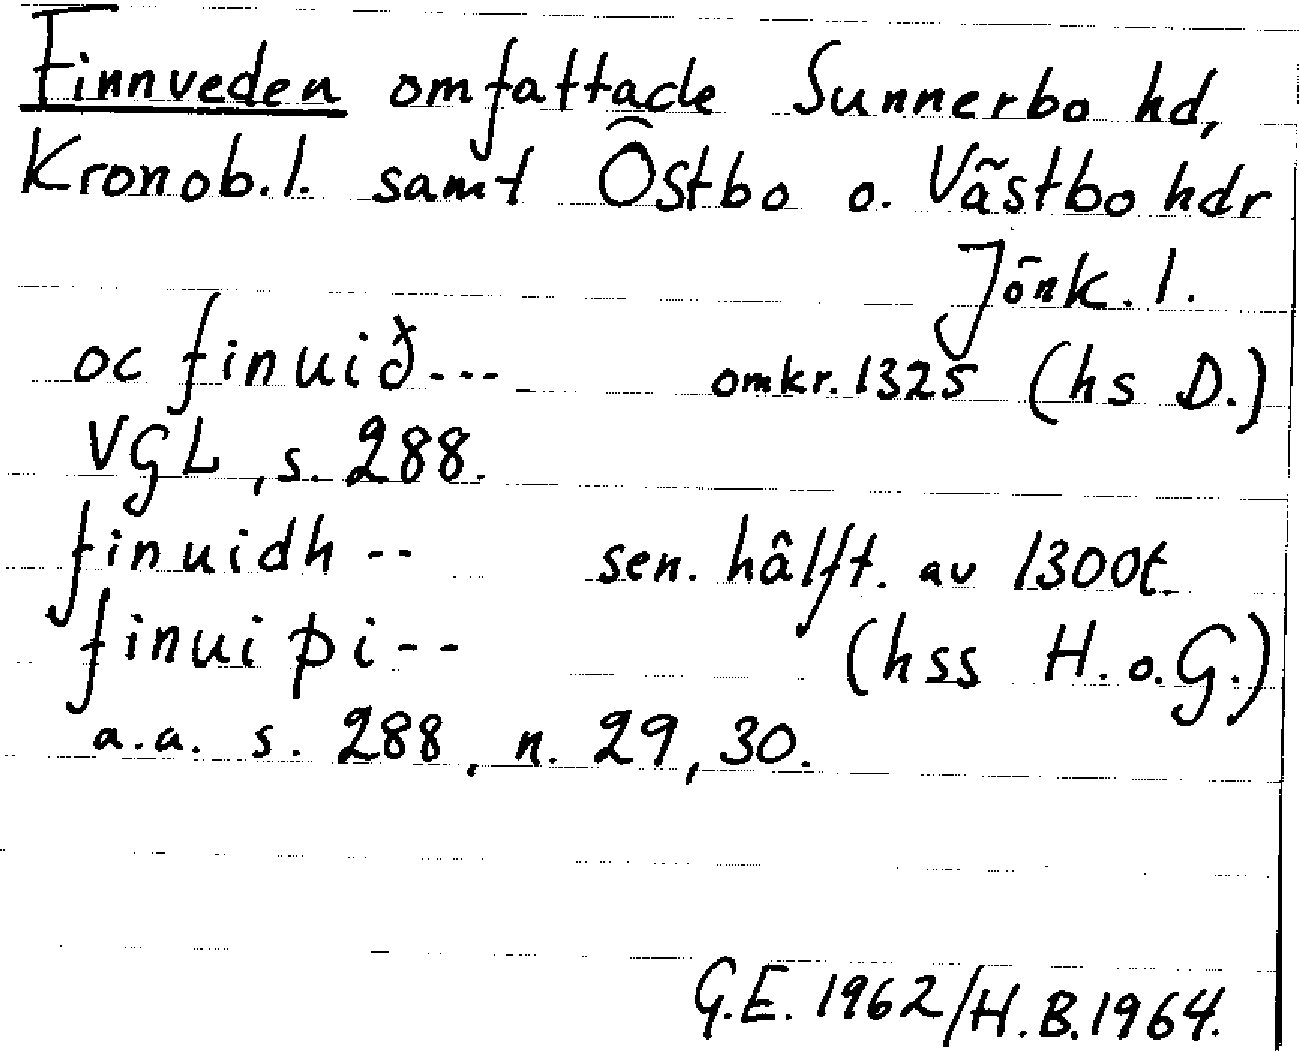 Finnveden omfattade Sunnerbo hd,
Kronob.l. samt Östbo o. Västbo hdr
Jönk.l.
oc finuið--- omkr. 1325 (hs D.)
VGL, s. 288.
finuidh -- sen. hälft. av 1300t.
finuiþi-- (hss H. o. G.)
a.a. s. 288, n. 29, 30.
G.E. 1962/H.B. 1964.